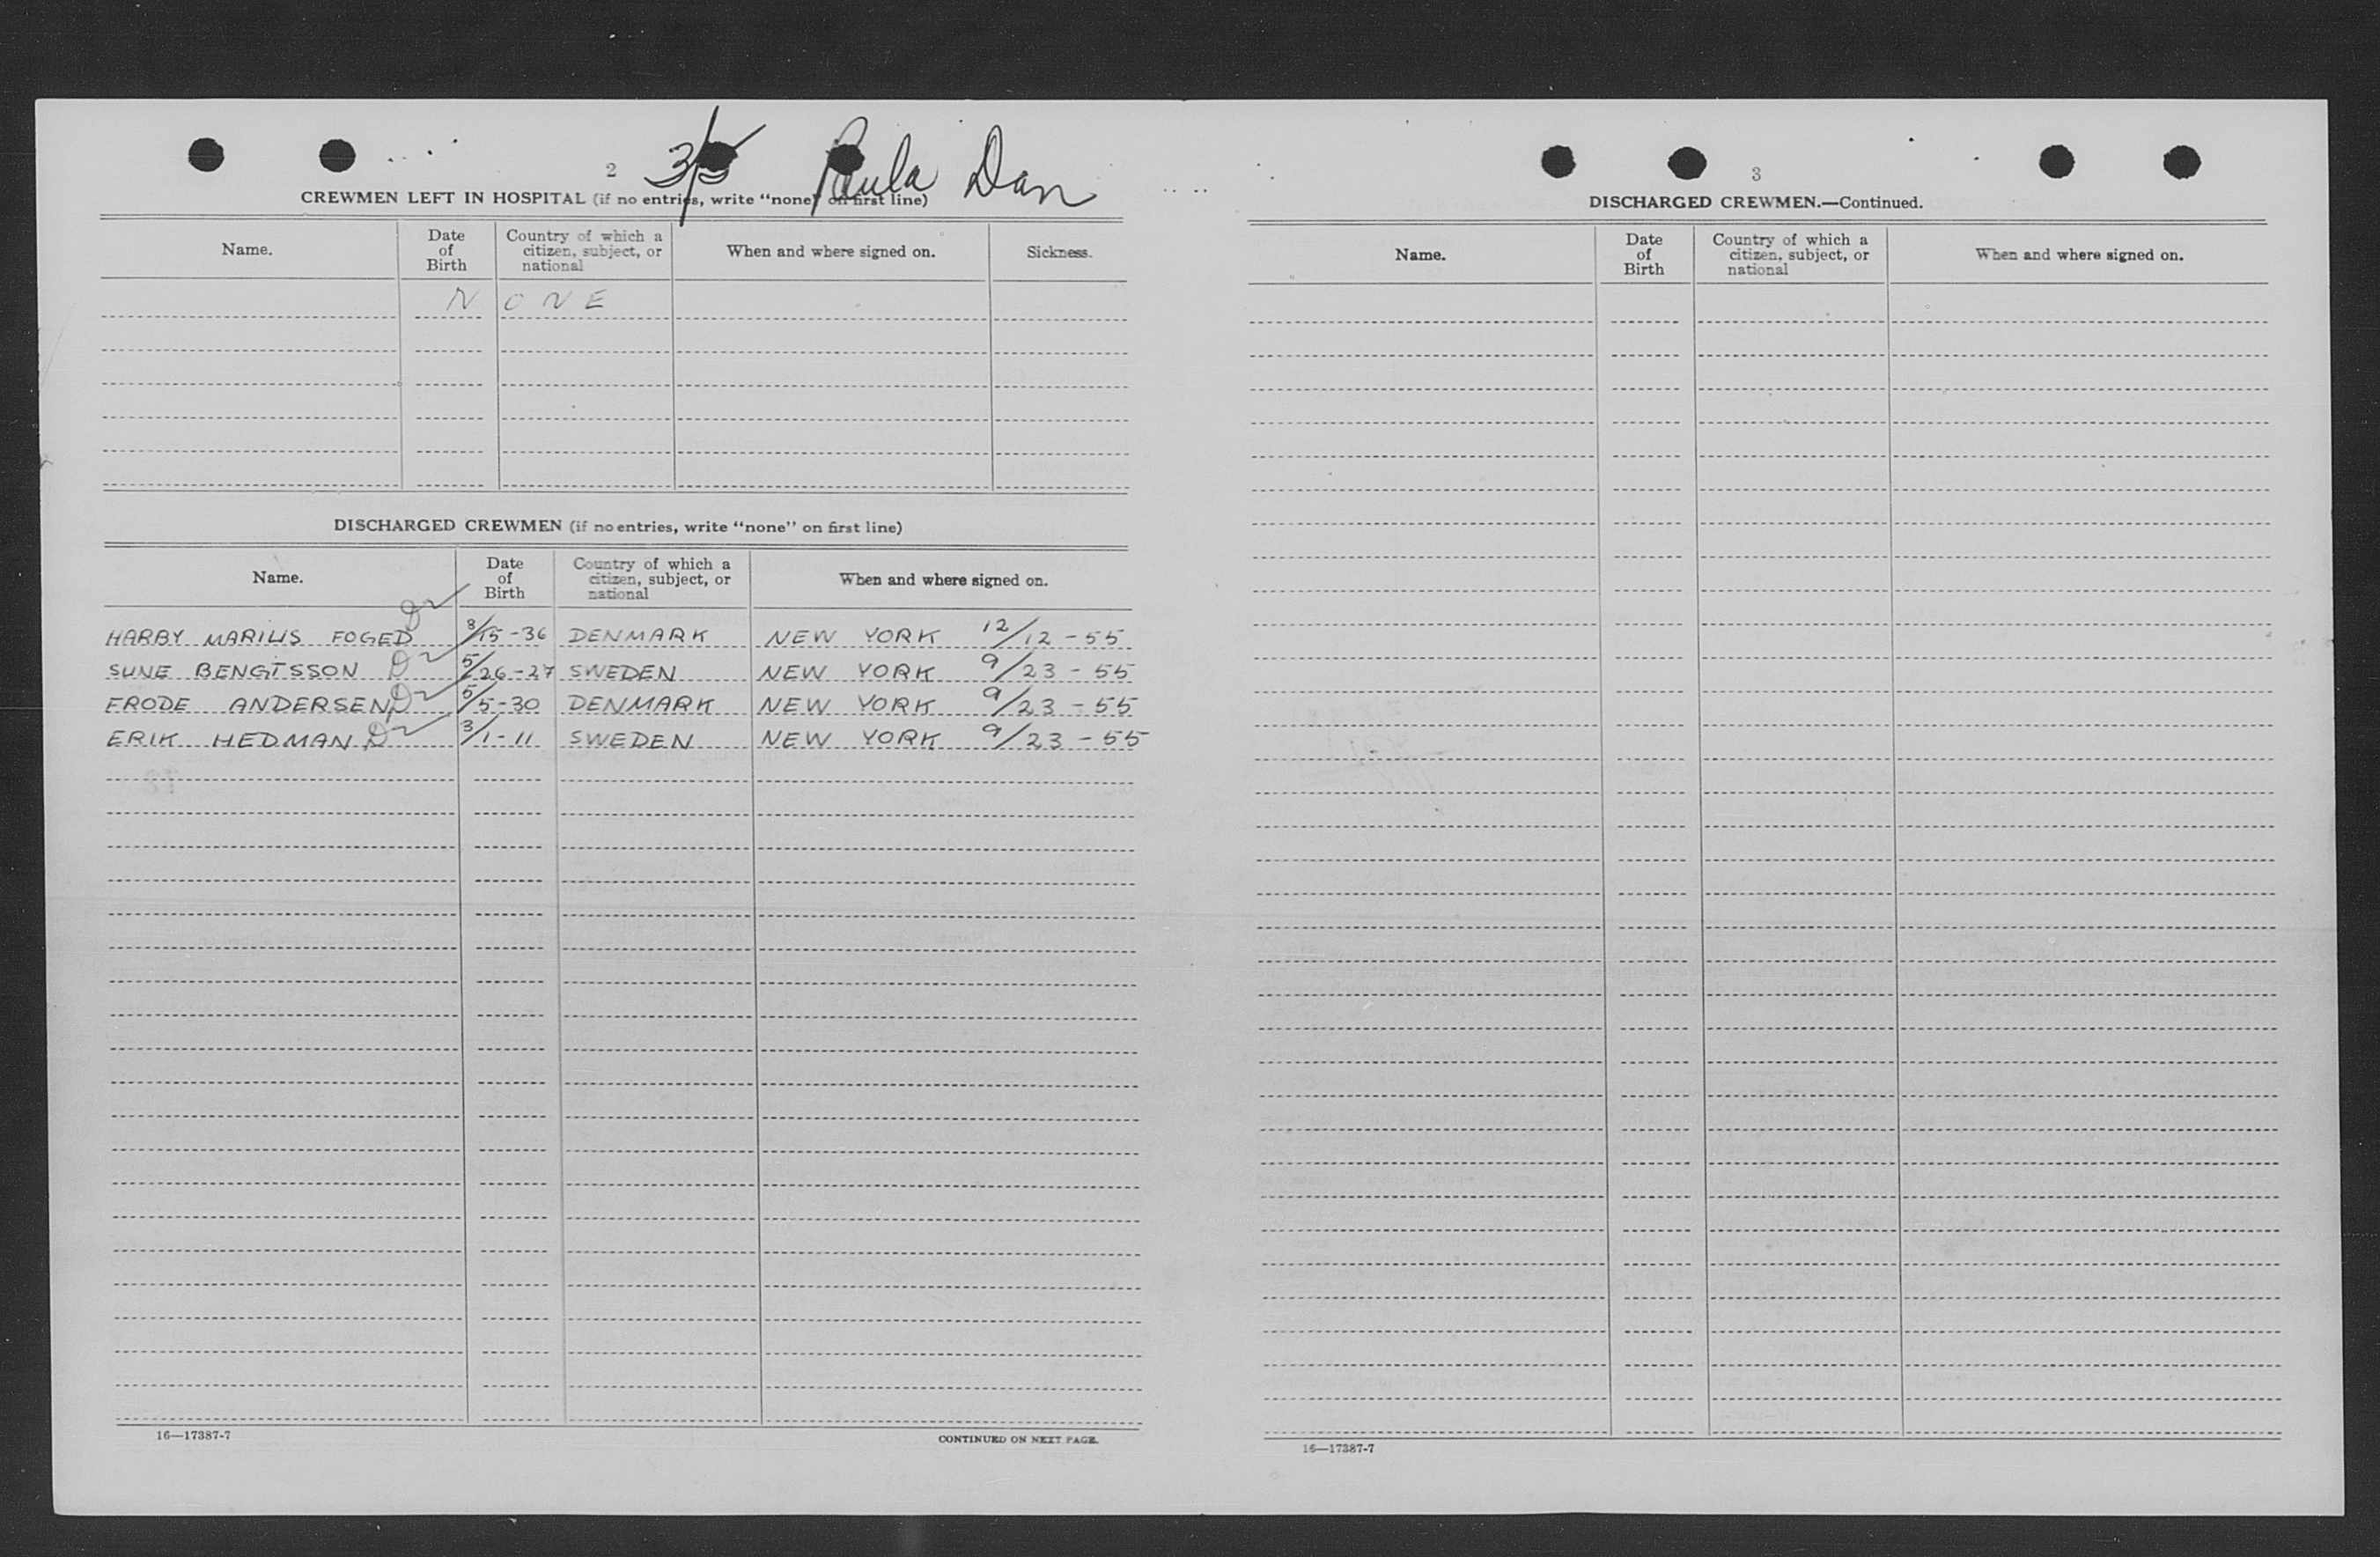 2 3/5 Paula Dan
CREWMEN LEFT IN HOSPITAL (if no entries, write "none" on first line)
Name. Date of Birth Country of which a citizen, subject, or national When and where signed on. Sickness.
NONE
DISCHARGED CREWMEN (if no entries, write "none" on first line)
Name. Date of Birth Country of which a citizen, subject, or national When and where signed on.
HARBY MARIUS FOGED 8/15-36 DENMARK NEW YORK 12/12-55
SUNE BENGTSSON 5/26-27 SWEDEN NEW YORK 9/23-55
FRODE ANDERSEN 5/5-30 DENMARK NEW YORK 9/23-55
ERIK HEDMAN 3/1-11 SWEDEN NEW YORK 9/23-55
16—17387-7 CONTINUED ON NEXT PAGE.
3
DISCHARGED CREWMEN.—Continued.
Name. Date of Birth Country of which a citizen, subject, or national When and where signed on.
16—17387-7